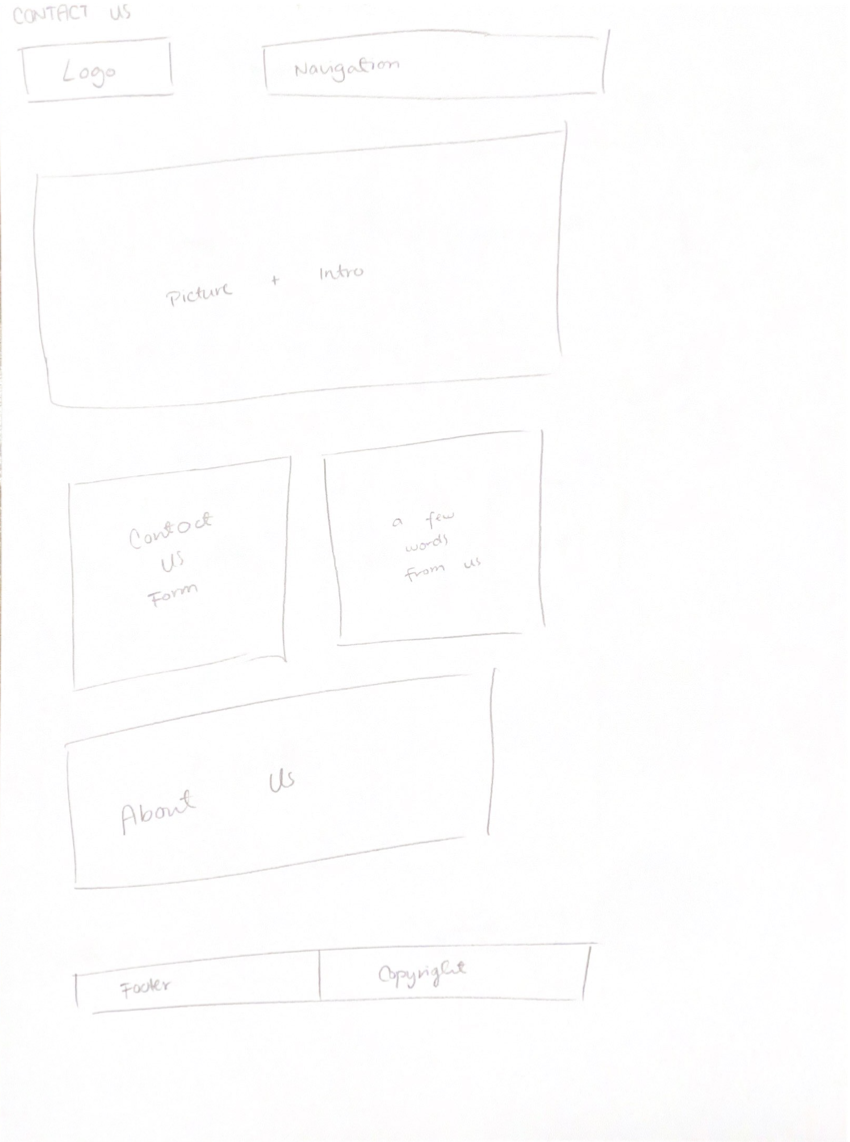 CONTACT US
Logo
Navigation
Picture + Intro
Contact
us
Form
a few
words
from us
About Us
Footer
Copyright